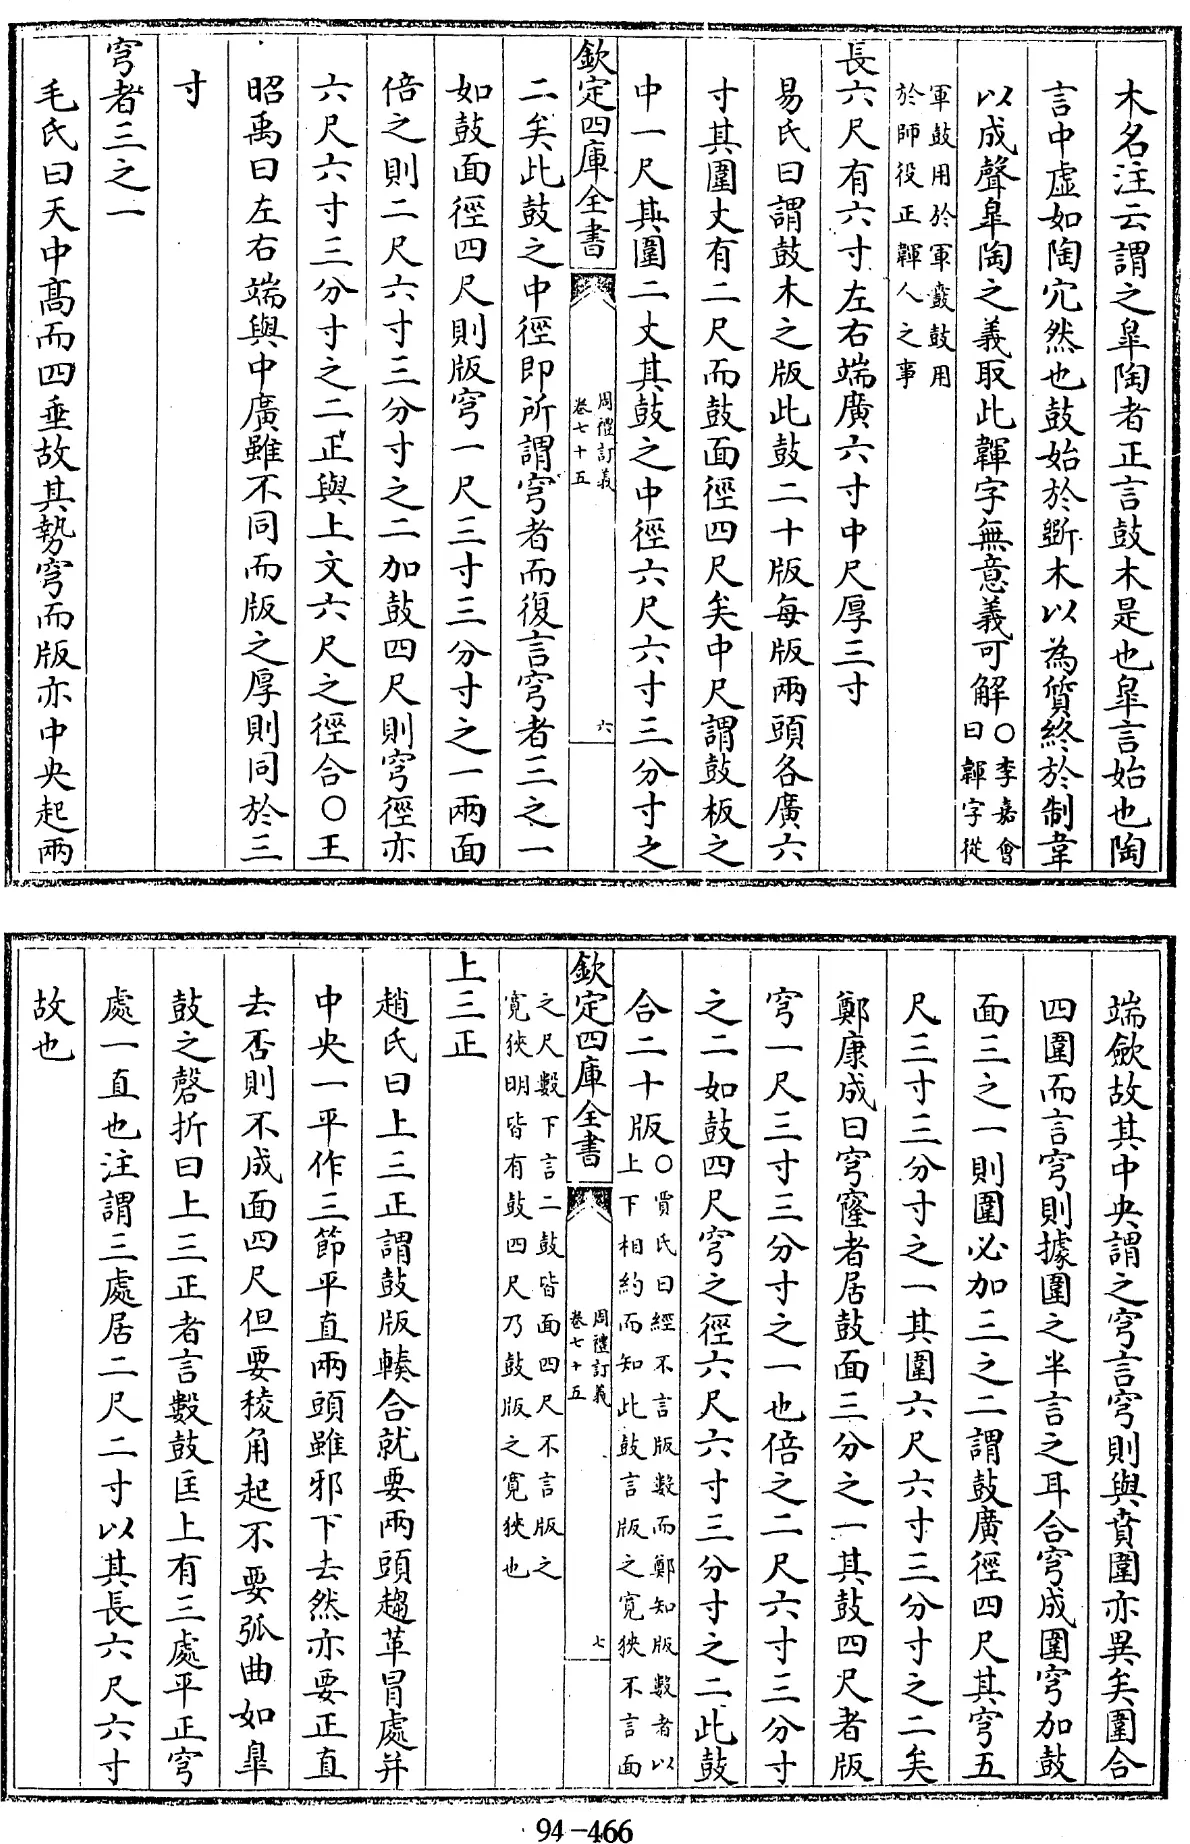 木名注云謂之臯陶者正言鼓木是也臯言始也陶
言中虛如陶宂然也鼓始於斵木以為質終於制韋
以成聲臯陶之義取此韗字無意義可解○李嘉會
曰韗字從
軍鼓用於軍鼖鼓用
於師役正韗人之事
長六尺有六寸左右端廣六寸中尺厚三寸
易氏曰謂鼓木之版此鼓二十版每版兩頭各廣六
寸其圍丈有二尺而鼓面徑四尺矣中尺謂鼓板之
中一尺其圍二丈其鼓之中徑六尺六寸三分寸之
欽定四庫全書
周禮訂義
卷七十五
六
二矣此鼓之中徑即所謂穹者而復言穹者三之一
如鼓面徑四尺則版穹一尺三寸三分寸之一兩面
倍之則二尺六寸三分寸之二加鼓四尺則穹徑亦
六尺六寸三分寸之二正與上文六尺之徑合○王
昭禹曰左右端與中廣雖不同而版之厚則同於三
寸
穹者三之一
毛氏曰天中髙而四垂故其勢穹而版亦中央起兩
端歛故其中央謂之穹言穹則與賁圍亦異矣圍合
四圍而言穹則據圍之半言之耳合穹成圍穹加鼓
面三之一則圍必加三之二謂鼓廣徑四尺其穹五
尺三寸三分寸之一其圍六尺六寸三分寸之二矣
鄭康成曰穹窿者居鼓面三分之一其鼓四尺者版
穹一尺三寸三分寸之一也倍之二尺六寸三分寸
之二如鼓四尺穹之徑六尺六寸三分寸之二此鼓
合二十版○賈氏曰經不言版數而鄭知版數者以
上下相約而知此鼓言版之寛狹不言面
欽定四庫全書
周禮訂義
卷七十五
七
之尺數下言二鼓皆面四尺不言版之
寛狹明皆有鼓四尺乃鼓版之寛狹也
上三正
趙氏曰上三正謂鼓版輳合就要兩頭趨革冒處并
中央一平作三節平直兩頭雖邪下去然亦要正直
去否則不成面四尺但要稜角起不要弧曲如臯
鼓之磬折曰上三正者言數鼓匡上有三處平正穹
處一直也注謂三處居二尺二寸以其長六尺六寸
故也
94-466